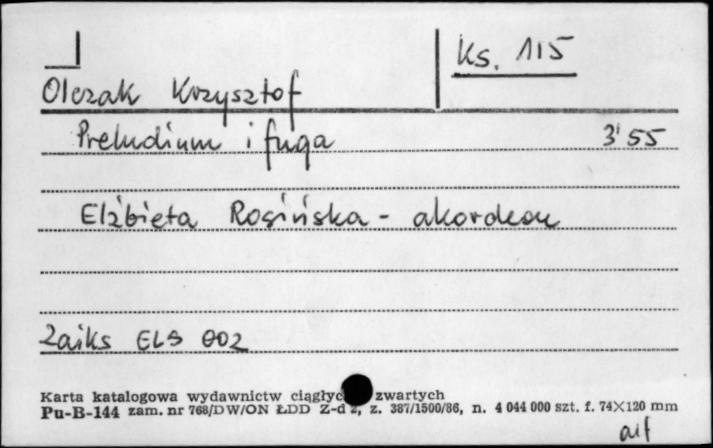 Ks. 115
Olczak Krzysztof
Preludium i fuga 3'55
Elżbieta Rosińska - akordeon
Zaiks ELS 002
Karta katalogowa wydawnictw ciągłyc zwartych
Pu-B-144 zam. nr 768/DW/ON ŁDD Z-d 2, z. 387/1500/86, n. 4 044 000 szt. f. 74×120 mm